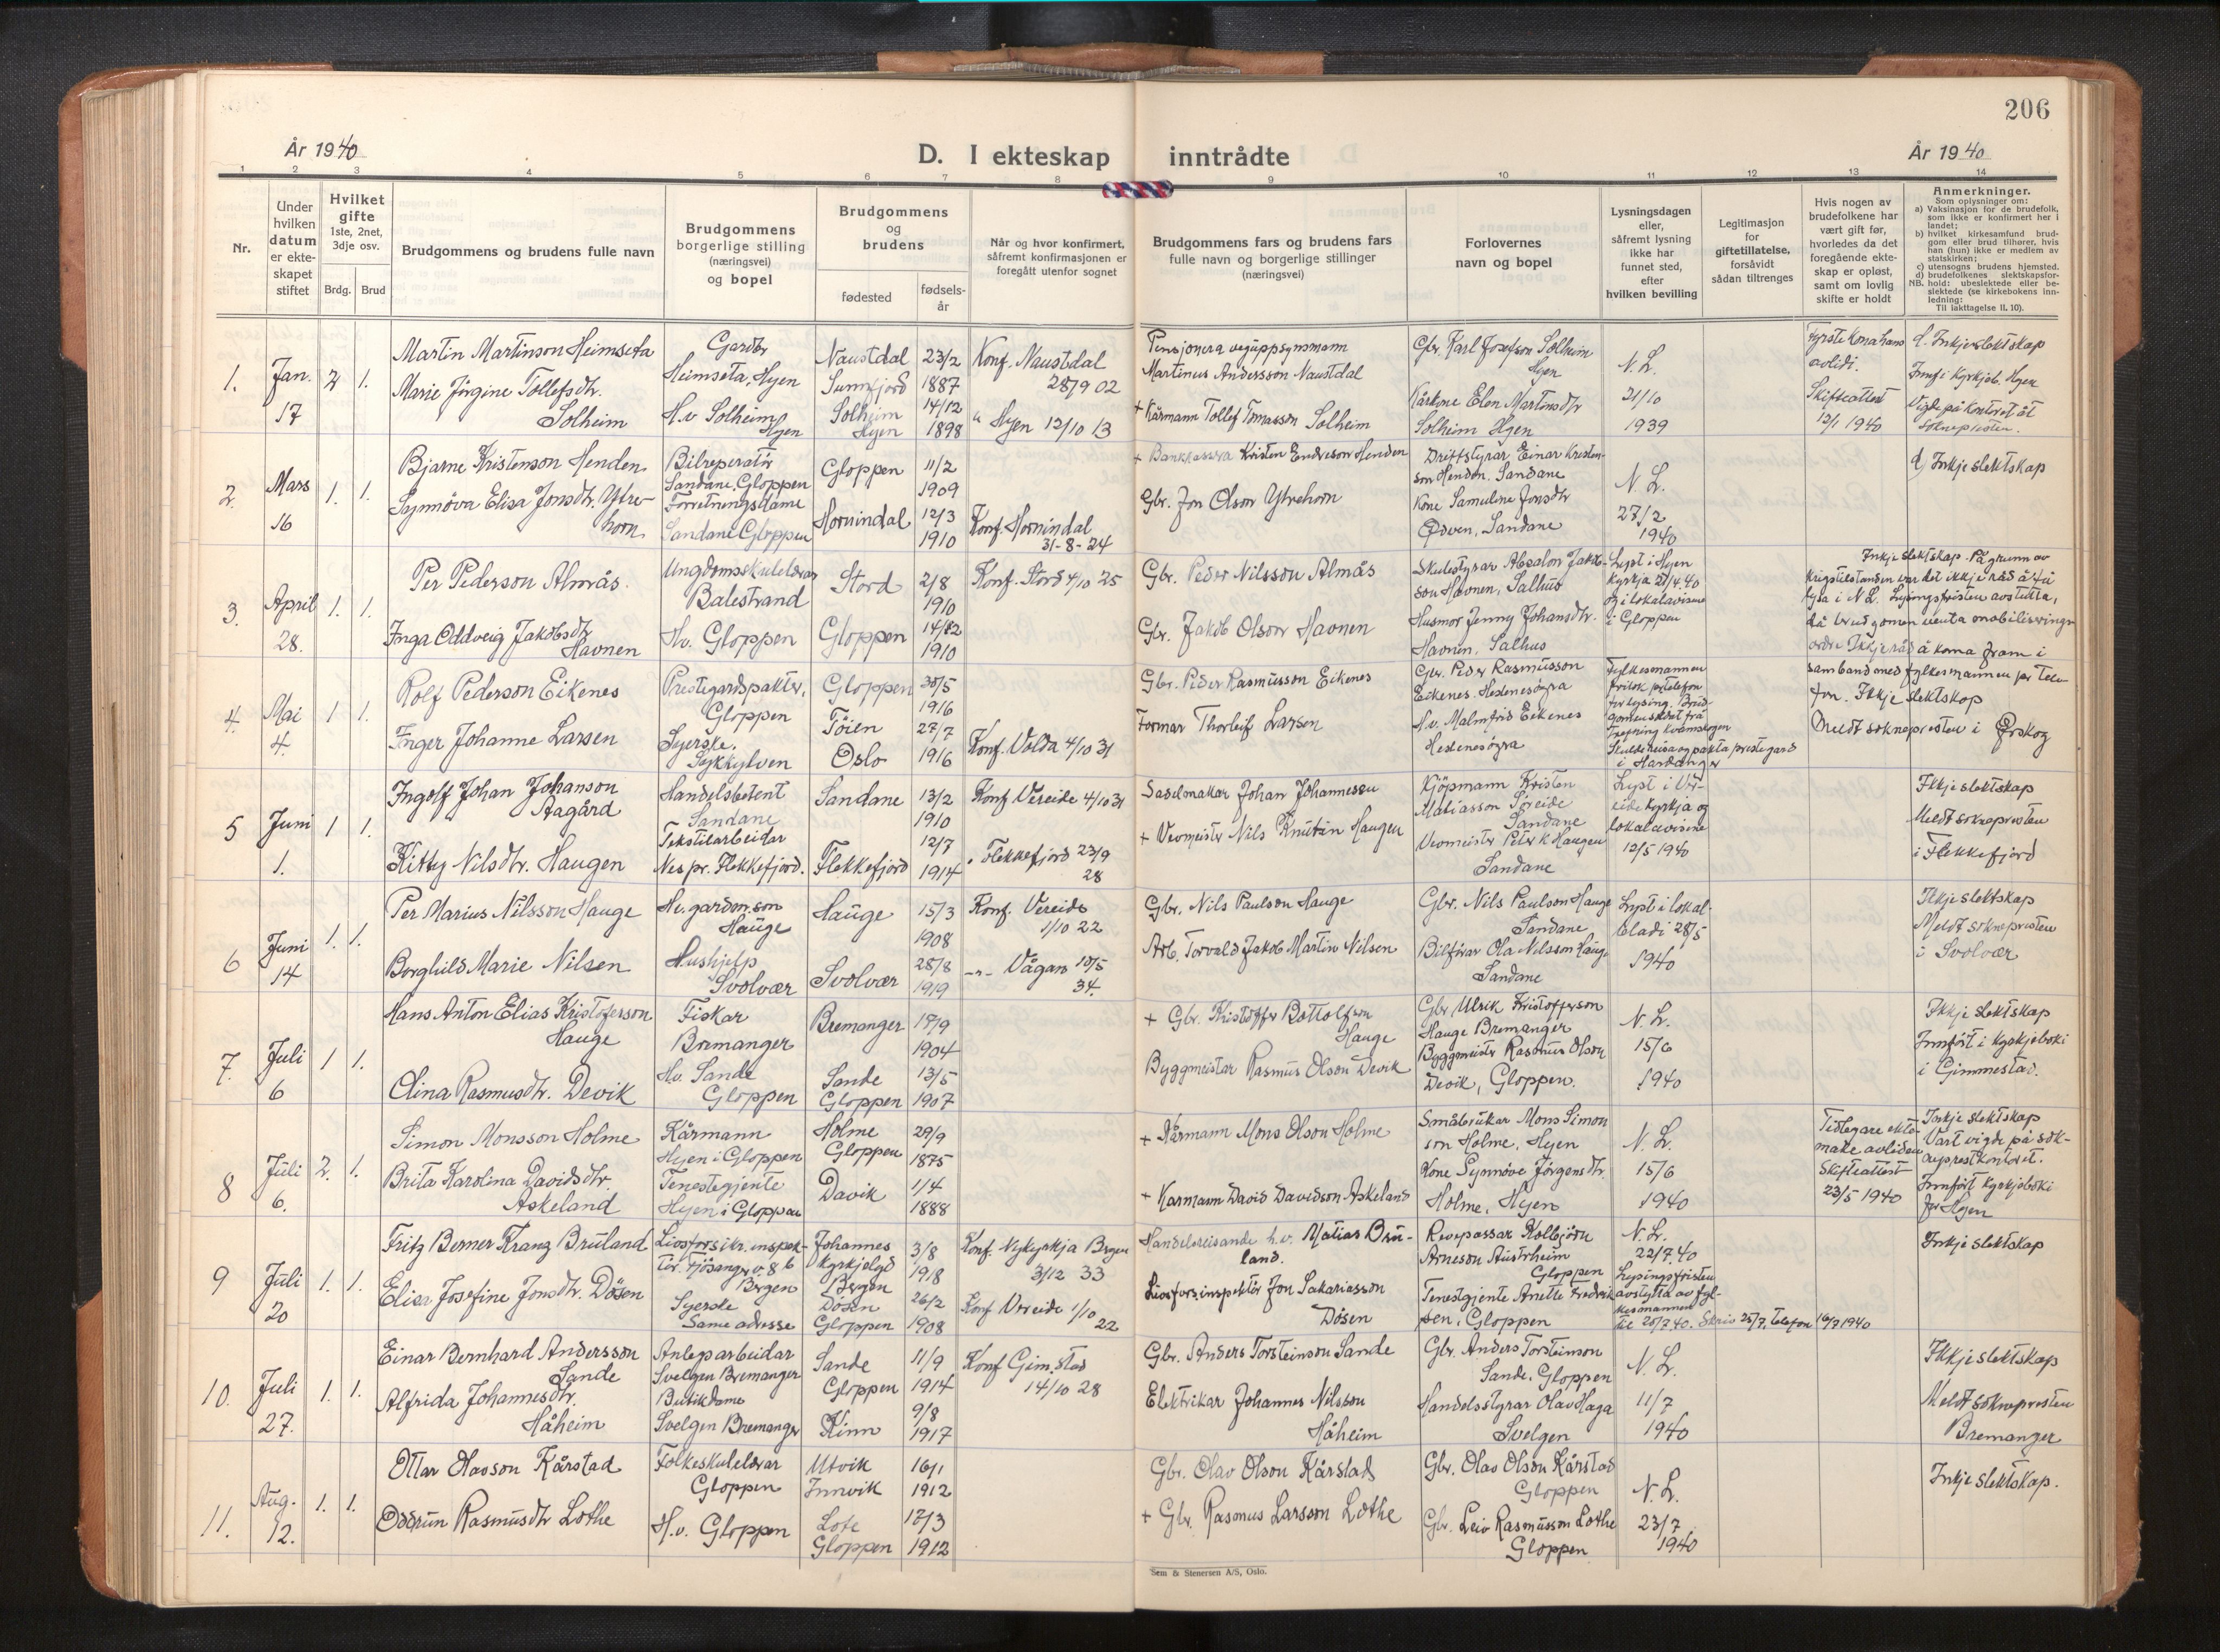 206
År 1940
D. I ekteskap inntrådte
År 1940
1 2 3 4 5 6 7 8 9 10 11 12 13 14
Nr.
Under
hvilken
datum
er ekte-
skapet
stiftet
Hvilket
gifte
1ste, 2net,
3dje osv.
Brdg. Brud
Brudgommens og brudens fulle navn
Brudgommens
borgerlige stilling
(næringsvei)
og bopel
Brudgommens
og
brudens
fødested
fødsels-
år
Når og hvor konfirmert,
såfremt konfirmasjonen er
foregått utenfor sognet
Brudgommens fars og brudens fars
fulle navn og borgerlige stillinger
(næringsvei)
Forlovernes
navn og bopel
Lysningsdagen
eller,
såfremt lysning
ikke har
funnet sted,
efter
hvilken bevilling
Legitimasjon
for
giftetillatelse,
forsåvidt
sådan tiltrenges
Hvis nogen av
brudefolkene har
vært gift før,
hvorledes da det
foregående ekte-
skap er opløst,
samt om lovlig
skifte er holdt
Anmerkninger.
Som oplysninger om:
a) Vaksinasjon for de brudefolk,
som ikke er konfirmert her i
landet;
b) hvilket kirkesamfund brud-
gom eller brud tilhører, hvis
han (hun) ikke er medlem av
statskirken;
c) utensogns brudens hjemsted.
d) brudefolkenes slektskapsfor-
hold: ubeslektede eller be-
slektede (se kirkebokens inn-
ledning:
NB.
Til iakttagelse II, 10).
1.
Jan.
17
2 1.
Martin Martinson Heimseta
Marie Jörgine Tollefsdtr.
Solheim
Gardbr
Heimseta, Hyen
H.v Solheim
Hyen
Naustdal
Sunnfjord
Solheim
Hyen
23/2
1887
14/12
1898
Konf. Naustdal
28/9 02
" Hyen 12/10 13
Pensjonera veguppsynsmann
Martinus Andersson Naustdal
+ Kårmann Tollef Tomasson Solheim
Gbr. Karl Josefson Solheim
Hyen
Kårkone Elen Martinsdtr
Solheim Hyen
N. L.
21/10
1939
Fyrste kona hans
avlidi.
Skifteattest
12/1 1940
d. Inkje slektskap
Innf. i Kyrkjeb. Hyen
Vigde på kontoret åt
soknepresten.
2.
Mars
16
1. 1.
Bjarne Kristenson Henden
Synnöva Elisa Jonsdtr. Ytre-
horn
Bilreperatör
Sandane, Gloppen
Forretningsdame
Sandane Gloppen
Gloppen
Hornindal
11/2
1909
12/3
1910
Konf. Hornindal
31-8-24
+ Bankkassera Kristen Endreson Henden
Gbr. Jon Olson Ytrehorn
Driftstyrar Einar Kristen-
son Henden, Sandane
Kone Samuline Jonsdtr
Ødven, Sandane
N. L.
27/2
1940
d) Inkje slektskap
3.
April
28.
1. 1.
Per Pederson Almås.
Inga Oddveig Jakobsdtr
Havnen
Ungdomsskulelærar
Balestrand
Hv. Gloppen
Stord
Gloppen
2/8
1910
14/12
1910
Konf. Stord 4/10 25
Gbr. Peder Nilsson Almås
Gbr. Jakob Olson Havnen
Skulestyrar Absalon Jakob-
son Havnen, Salhus
Husmor Jenny Johansdtr.
Havnen, Salhus
Lyst i Hyen
kyrkja 21/4.40
og i lokalavisene
i Gloppen
Inkje slektskap. På grunn av
krigstilstanden var det ikkje råd å få
lysa i N L. Lysingsfristen avstutta,
då brudgomen venta mobiliserings-
ordre. Ikkje råd å koma fram i
samband med fylkesmannen per tele-
fon. Ikkje slektskap
4.
Mai
4.
1 1.
Rolf Pederson Eikenes
Inger Johanne Larsen
Prestegardspaktar,
Gloppen
Syerske.
Sykkylven
Gloppen
Töien
Oslo
30/5
1916
27/7
1916
Konf. Volda 4/10 31
Gbr. Peder Rasmusson Eikenes
Formar Thorleif Larsen
Gbr. Peder Rasmusson
Eikenes. Hestenesøyra
H.v. Malmfrid Eikenes
Hestenesøyra
Fylkesmannen
fritok pr telefon
for lysing. Brud-
gomen
Skulde reisa og pakta prestegard
i Hardanger
Meldt soknepresten i Ørskog
5
Juni
1.
1 1.
Ingolf Johan Johanson
Aagård
Kitty Nilsdtr. Haugen
Handelsbetent
Sandane
Tekstilarbeidar
Nes pr. Flekkefjord.
Sandane
Flekkefjord
13/2
1910
12/7
1914
Konf. Vereide 4/10 31
" Flekkefjord 23/9
28
Sadelmakar Johan Johannessen
+ Vevmeister Nils Knutin Haugen
Kjöpmann Kristen
Matiasson Söreide
Sandane
Vevmeister Peter K Haugen
Sandane
Lyst i Ver-
eide kyrkja og
lokalavisene
12/5 1940
Ikkje slektskap
Meldt soknepresten
i Flekkefjord
6
Juni
14
1. 1.
Per Marius Nilsson Hauge
Borghild Marie Nilsen
Hv. gardm. son
Hauge
Hushjelp
Svolvær
Hauge
Svolvær
15/3
1908
28/8
1919
Konf. Vereide
1/10 22
-"- Vågan 10/5
34.
Gbr. Nils Paulson Hauge
Arb. Torvald Jakob Martin Nilsen
Gbr. Nils Paulson Hauge
Sandane
Bilförar Ola Nilsson Hauge
Sandane
Lyst i lokal-
bladi 28/5
1940
Ikkje slektskap
Meldt soknepresten
i Svolvær
7.
Juli
6
1 1.
Hans Anton Elias Kristoferson
Hauge
Olina Rasmusdtr. Devik
Fiskar
Bremanger
Hv. Sande
Gloppen
Bremanger
Sande
Gloppen
17/9
1904
13/5
1907
+ Gbr. Kristoffer Bottolfson
Hauge
Byggmeister Rasmus Olson Devik
Gbr Ulrik Kristofferson
Hauge Bremanger
Byggmeister Rasmus Olson
Devik, Gloppen.
N. L.
15/6
1940
Ikkje slektskap
Innfört i kyrkjeboki
i Gimmestad.
8
Juli
6.
2. 1.
Simon Monsson Holme
Brita Karolina Davidsdtr.
Askeland
Kårmann
Hyen i Gloppen
Tenestegjente
Hyen i Gloppen
Holme
Gloppen
Davik
29/9
1875
1/4
1888
+ Kårmann Mons Olson Holme
+ Karmann David Davidson Askeland
Småbrukar Mons Simon
son Holme, Hyen
Kone Synnöve Jörgensdtr.
Holme, Hyen
N. L.
15/6
1940
Tidlegare ekte-
make avliden
Skifteattest
23/5 1940
Inkje slektskap
Vart vigde på sok-
neprestkontoret.
Innfört Kyrkjeboki
for Hyen
9
Juli
20
1. 1.
Fritz Berner Kranz Bruland
Elisa Josefine Jonsdtr. Dösen
Livsforsikr. inspek-
tör. Fjösangerv. 8 b
Bergen
Syerske
Same adresse
Johannes
kyrkjelyd
Bergen
Dösen
Gloppen
3/8
1918
26/2
1908
Konf. Nykyrkja Bergen
3/12 33
Konf Vereide 1/10
22
Handelsreisande h.v. Matias Bru-
land.
Livsfors.inspektör Jon Sakariasson
Dösen
Revepassar Kolbjörn
Arneson Austrheim
Gloppen
Tenestgjente Anette Fredrik
sen, Gloppen
N. L.
22/7.40
Lysingsfristen
avstytta av fyl-
kesmannen
til 20/7.40. Skriv 25/7, telefon 16/7 1940
Inkje slektskap
10.
Juli
27.
1. 1.
Einar Bernhard Andersson
Sande
Alfrida Johannesdtr.
Håheim
Anlegsarbeidar
Svelgen Bremanger
Butikdame
Svelgen Bremanger
Sande
Gloppen
Kinn
11/9
1914
9/8
1917
Konf Gim.stad
14/10 28
Gbr. Anders Torsteinson Sande
Elektrikar Johannes Nilsson
Håheim
Gbr. Anders Torsteinson
Sande, Gloppen
Handelsstyrar Olav Haga
Svelgen
N. L.
11/7
1940
Ikkje slektskap
Meldt soknepresten
Bremanger
11.
Aug.
12.
1. 1.
Ottar Olavson Kårstad
Oddrun Rasmusdtr Lothe
Folkeskulelærar
Gloppen
H.v. Gloppen
Utvik
Innvik
Lote
Gloppen
16/1
1912
17/3
1912
Gbr. Olav Olson Kårstad
+ Gbr. Rasmus Larsson Lothe
Gbr. Olav Olson Kårstad
Gloppen
Gbr. Leiv Rasmusson Lothe
Gloppen
N. L.
23/7
1940
Inkje slektskap.
Sem & Stenersen A/S, Oslo.